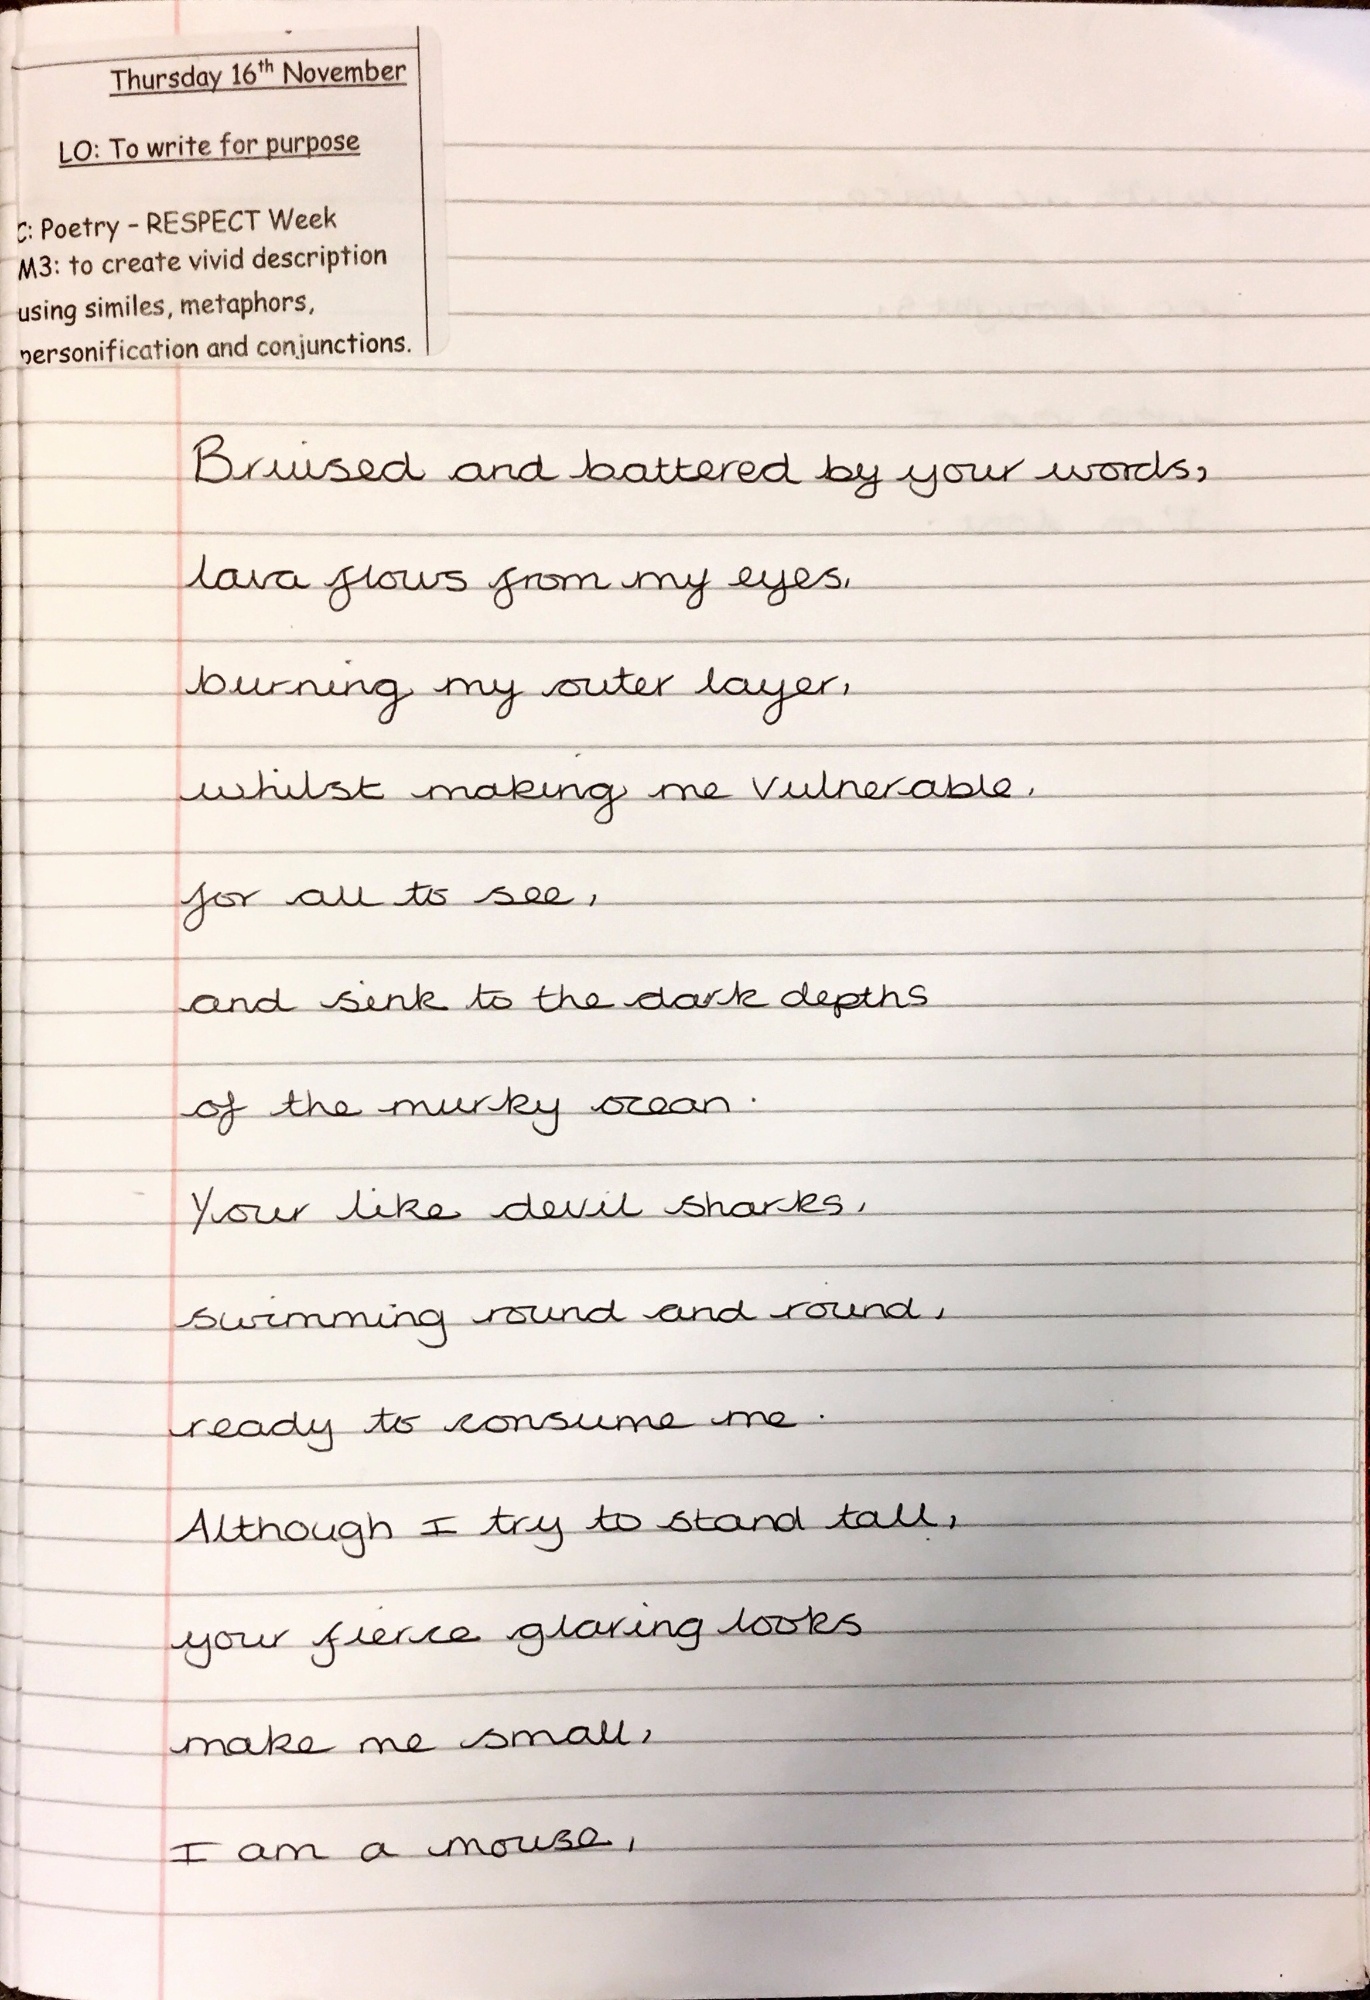 Thursday 16th November
LO: To write for purpose
C: Poetry - RESPECT Week
M3: to create vivid description
using similes, metaphors,
personification and conjunctions.
Bruised and battered by your words,
lava flows from my eyes,
burning my outer layer,
whilst making me vulnerable,
for all to see,
and sink to the dark depths
of the murky ocean.
Your like devil sharks,
swimming round and round,
ready to consume me.
Although I try to stand tall,
your fierce glaring looks
make me small,
I am a mouse,